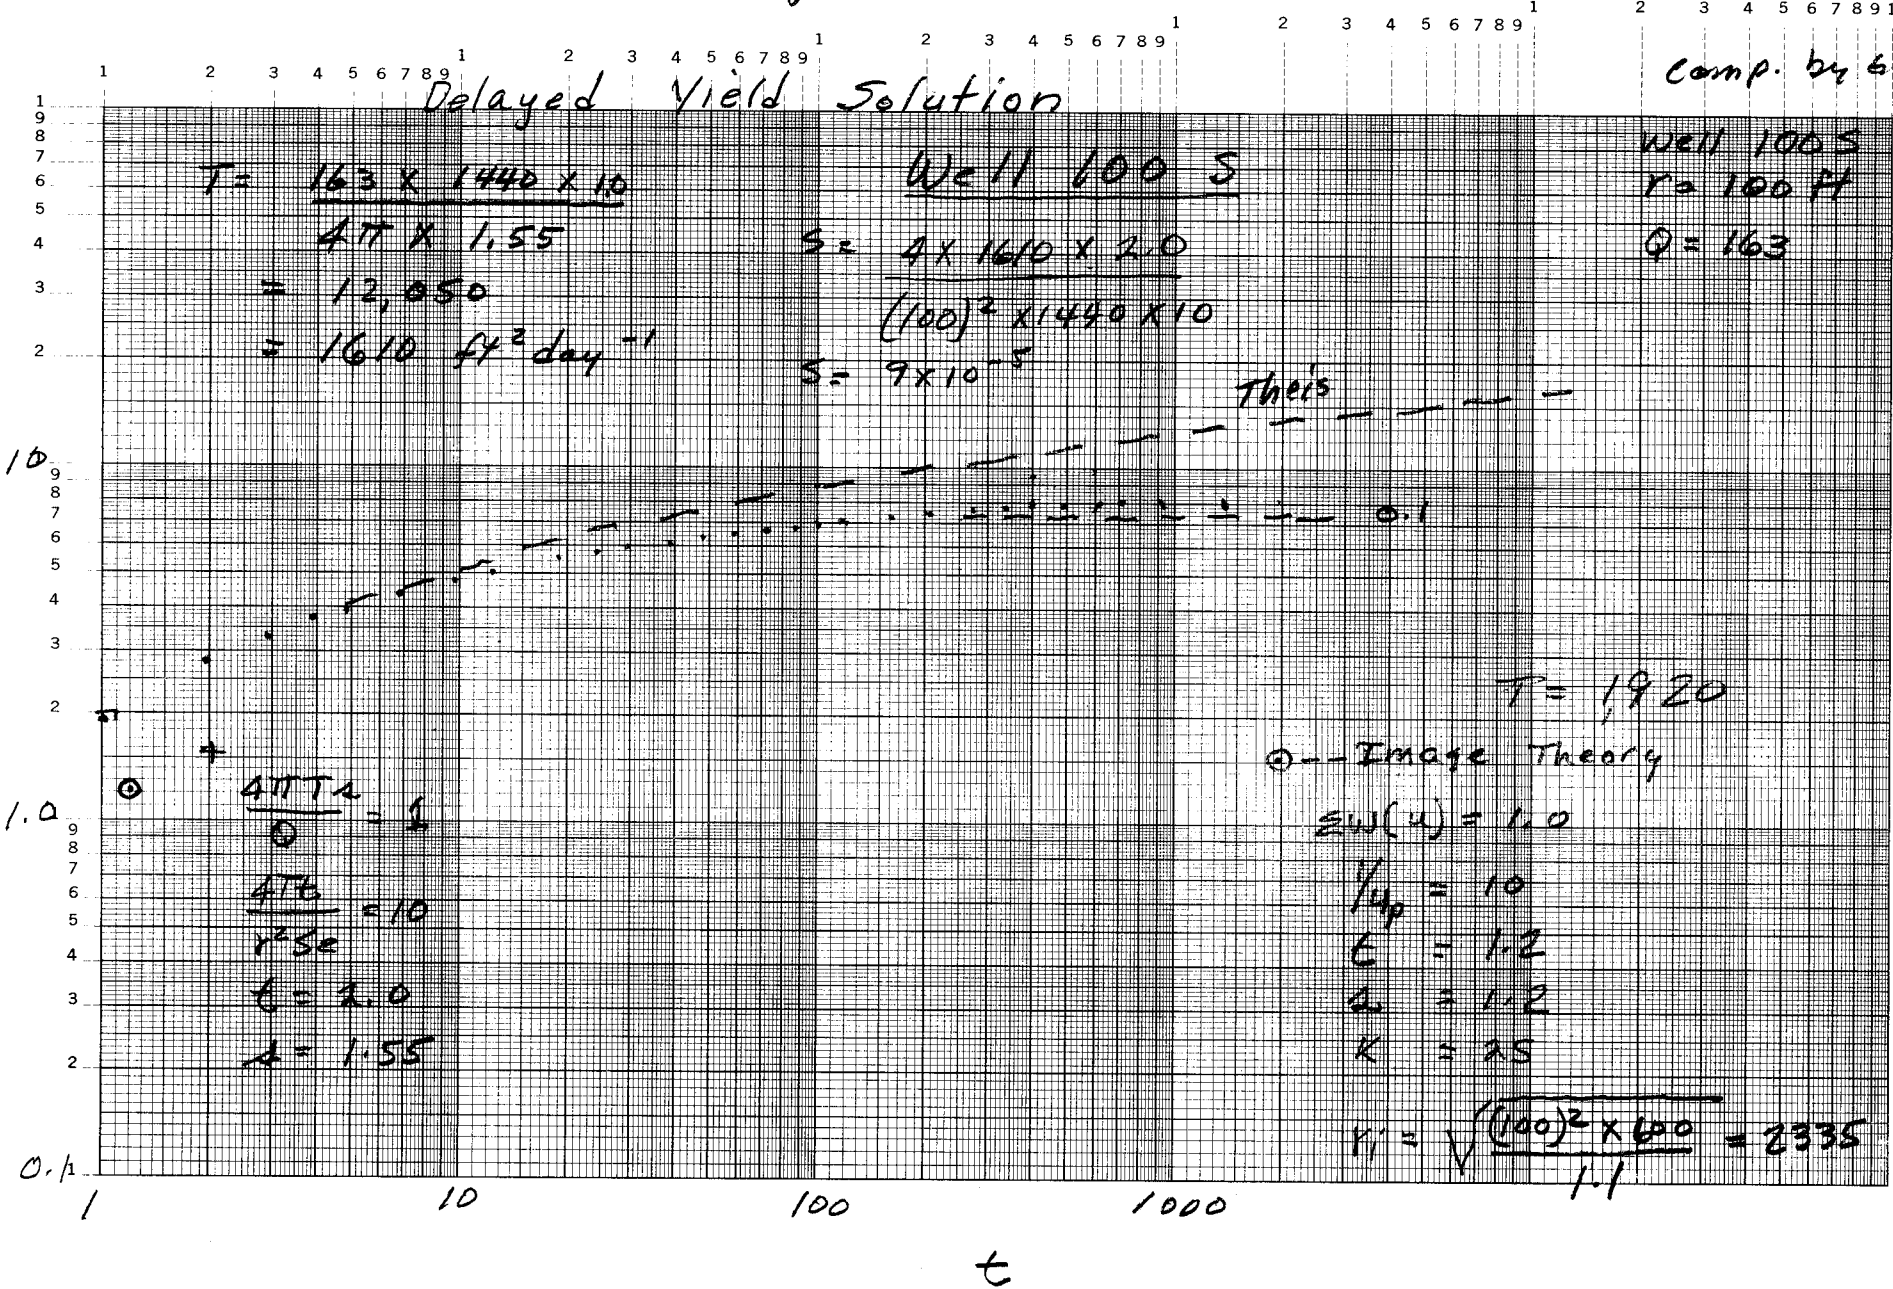 1 2 3 4 5 6 7 8 9 1
1 2 3 4 5 6 7 8 9
1 2 3 4 5 6 7 8 9
1 2 3 4 5 6 7 8 9
1 2 3 4 5 6 7 8 9
comp. by
Delayed Yield Solution
Well 100 S
r = 100 ft
Q = 163
T = 163 x 1440 x 1.0
4π x 1.55
= 12,050
= 1610 ft² day⁻¹
Well 100 S
S = 4 x 1610 x 2.0
(100)² x 1440 x 10
S = 9 x 10⁻⁵
Theis
0.1
T = 1,920
⊙--Image Theory
ΣW(u) = 1.0
1/up = 10
t = 1.2
s = 1.2
K = 25
ri = √(100)² x 600 = 2335
1.1
4πTs
Q
= 1
4Tt
r²Se
= 10
t = 2.0
s = 1.55
1
9
8
7
6
5
4
3
2
10
9
8
7
6
5
4
3
2
1.0
9
8
7
6
5
4
3
2
0.1
1
1 10 100 1000
t